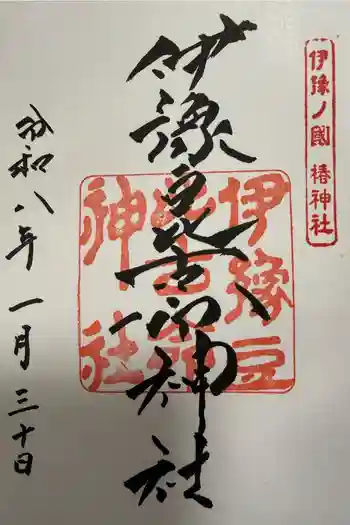 伊豫ノ國 椿神社
伊豫豆比古命神社
伊豫豆比古命神社
令和八年 一月 三十日